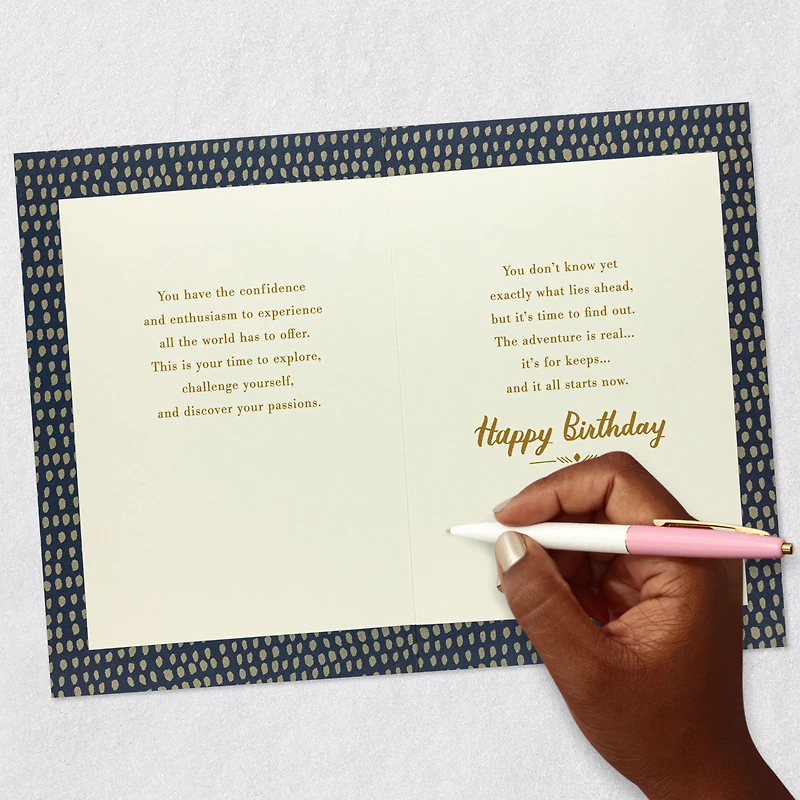 You have the confidence
and enthusiasm to experience
all the world has to offer.
This is your time to explore,
challenge yourself,
and discover your passions.
You don't know yet
exactly what lies ahead,
but it's time to find out.
The adventure is real...
it's for keeps...
and it all starts now.
Happy Birthday